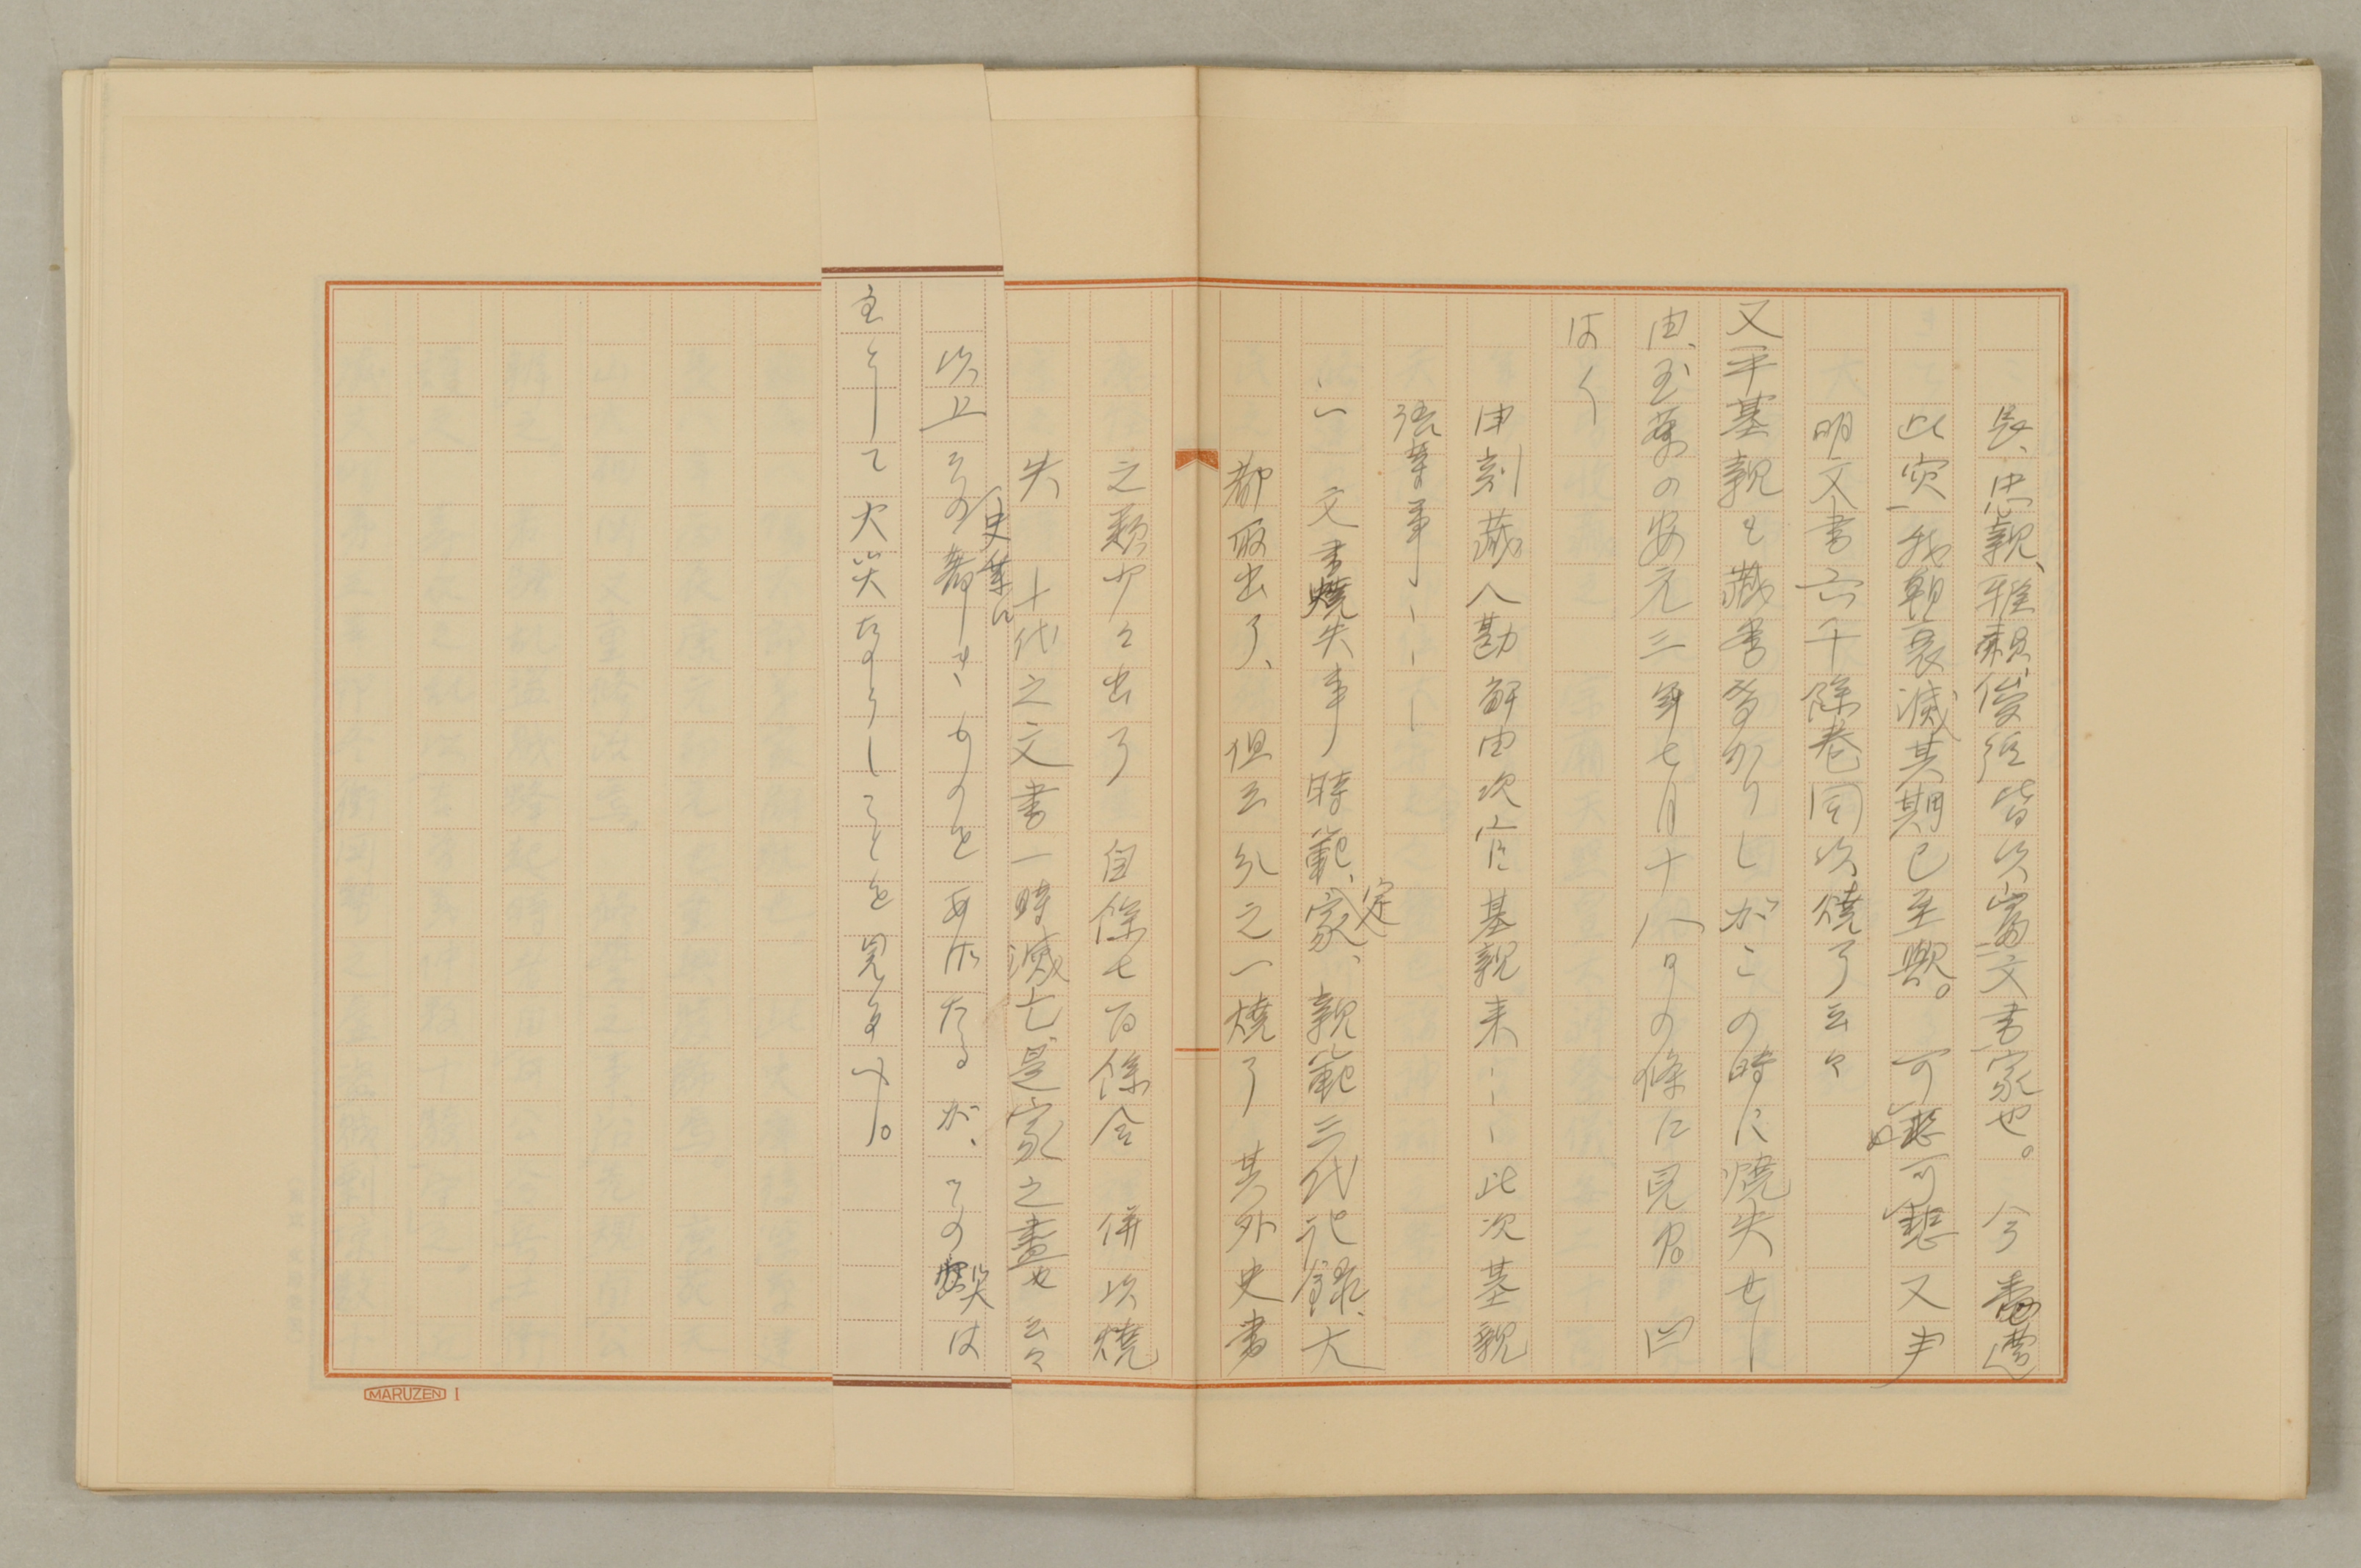 長、忠親、雅頼、俊経皆以富文書家也。今遭
此災、我朝衰滅其期已至歟。可悲可悲 又尹
明文書六千余巻同以焼了云々
又平基親も蔵書多かりしがこの時に焼失せし
由、玉葉の安元三年七月十八日の條に見ゆ 曰
はく
申刻蔵人勘解由次官基親来、、、此次基親
語草事、、、
一、文書焼失事 時範、定家、親範三代記録、大
都取出了、但云々之一焼了 其外史書
之類少々出了 自餘七百餘合 併以焼
失 十代之文書一時滅亡是家之尽也云々
以上その著しきものをあげたるが、この災は
史業に
主として火災なりしことを見るべし。
MARUZEN 1